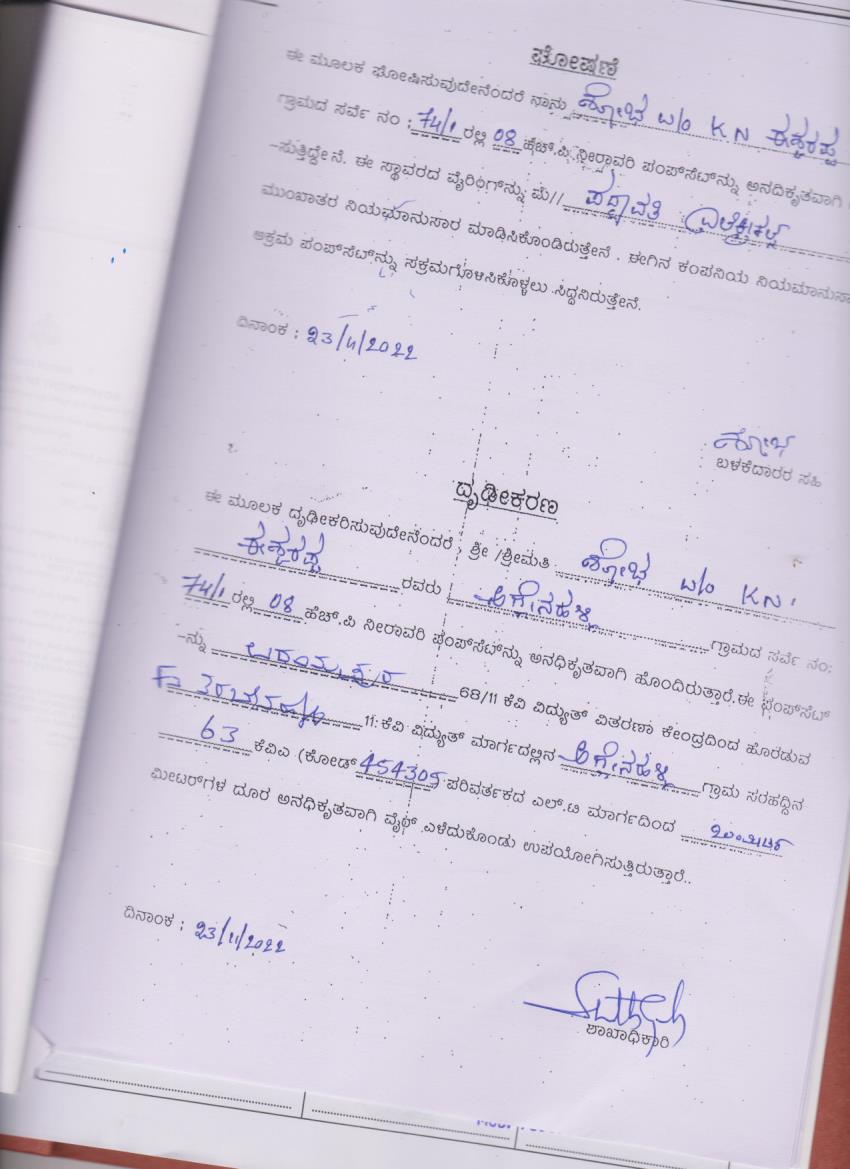 ಘೋಷಣೆ
ಈ ಮೂಲಕ ಘೋಷಿಸುವುದೇನೆಂದರೆ ನಾನು ಶೋಭ w/o K N ಈಶ್ವರಪ್ಪ
ಗ್ರಾಮದ ಸರ್ವೆ ನಂ : 74/1 ರಲ್ಲಿ 08 ಹೆಚ್.ಪಿ ನೀರಾವರಿ ಪಂಪ್‌ಸೆಟ್‌ನ್ನು ಅನಧಿಕೃತವಾಗಿ
-ಸುತ್ತಿದ್ದೇನೆ. ಈ ಸ್ಥಾವರದ ವೈರಿಂಗ್‌ನ್ನು ಮೆ// ಪದ್ಮಾವತಿ
ಮುಂಖಾತರ ನಿಯಮಾನುಸಾರ ಮಾಡಿಸಿಕೊಂಡಿರುತ್ತೇನೆ . ಈಗಿನ ಕಂಪನಿಯ ನಿಯಮಾನುಸಾ
ಅಕ್ರಮ ಪಂಪ್‌ಸೆಟ್‌ನ್ನು ಸಕ್ರಮಗೊಳಿಸಿಕೊಳ್ಳಲು ಸಿದ್ದನಿರುತ್ತೇನೆ.
ದಿನಾಂಕ : 23/11/2022
ಶೋಭ
ಬಳಕೆದಾರರ ಸಹಿ
ದೃಢೀಕರಣ
ಈ ಮೂಲಕ ದೃಢೀಕರಿಸುವುದೇನೆಂದರೆ , ಶ್ರೀ /ಶ್ರೀಮತಿ ಶೋಭ w/o KN
ಈಶ್ವರಪ್ಪ ರವರು ಅಗ್ರೇನಹಳ್ಳಿ ಗ್ರಾಮದ ಸರ್ವೆ ನಂ:
74/1 ರಲ್ಲಿ 08 ಹೆಚ್.ಪಿ ನೀರಾವರಿ ಪಂಪ್‌ಸೆಟ್‌ನ್ನು ಅನಧಿಕೃತವಾಗಿ ಹೊಂದಿರುತ್ತಾರೆ.ಈ ಪಂಪ್‌ಸೆಟ್
-ನ್ನು 68/11 ಕೆವಿ ವಿದ್ಯುತ್ ವಿತರಣಾ ಕೇಂದ್ರದಿಂದ ಹೊರಡುವ
11 ಕೆವಿ ವಿದ್ಯುತ್ ಮಾರ್ಗದಲ್ಲಿನ ಅಗ್ರೇನಹಳ್ಳಿ ಗ್ರಾಮ ಸರಹದ್ದಿನ
63 ಕೆವಿಎ (ಕೋಡ್ 454305 ಪರಿವರ್ತಕದ ಎಲ್.ಟಿ ಮಾರ್ಗದಿಂದ
ಮೀಟರ್‌ಗಳ ದೂರ ಅನಧಿಕೃತವಾಗಿ ವೈರ್ ಎಳೆದುಕೊಂಡು ಉಪಯೋಗಿಸುತ್ತಿರುತ್ತಾರೆ..
ದಿನಾಂಕ : 23/11/2022
ಶಾಖಾಧಿಕಾರಿ